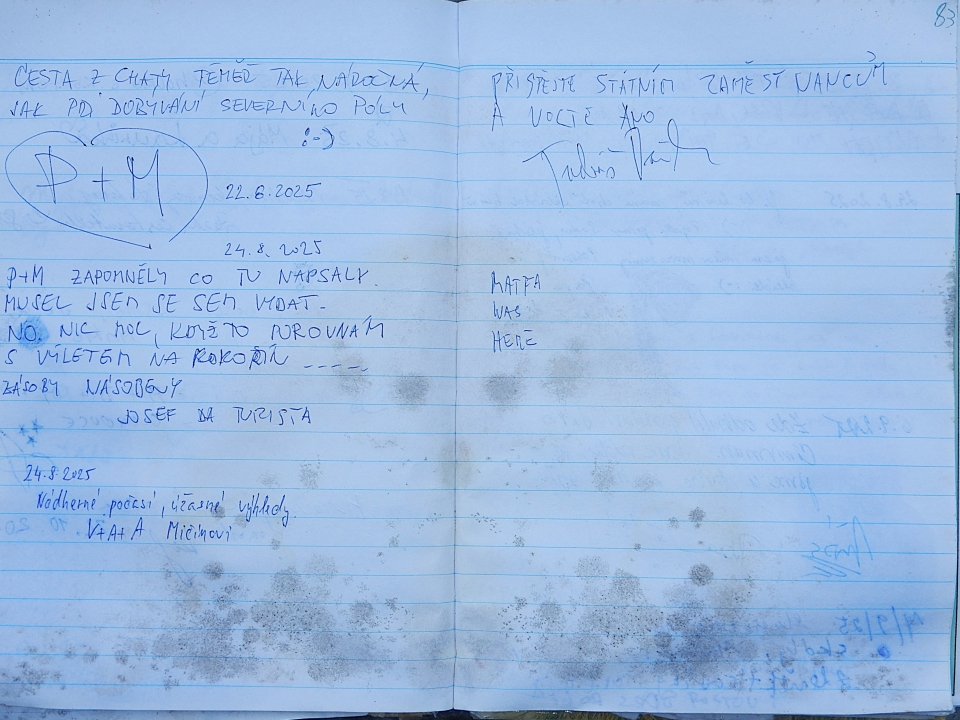 CESTA Z CHATY TÉMĚŘ TAK NÁROČNÁ,
JAK PŘI DOBÝVÁNÍ SEVERNÍHO PÓLU
:-)
P + M
22.6.2025
24.8.2025
P+M ZAPOMNĚLY CO TU NAPSALY.
MUSEL JSEM SE SEM VYDAT.
NO. NIC MOC, KDYŽ TO POROVNÁM
S VÝLETEM NA KOKOŘÍN -----
ZÁSOBY NÁSOBENY
JOSEF DA TURISTA
24.8.2025
Nádherné počasí, úžasné výhledy.
V+A+A Mičínovi
83
PŘISTĚJTE STÁTNÍM ZAMĚSTNANCŮM
A VOLTE ANO
MATFA
WAS
HERE